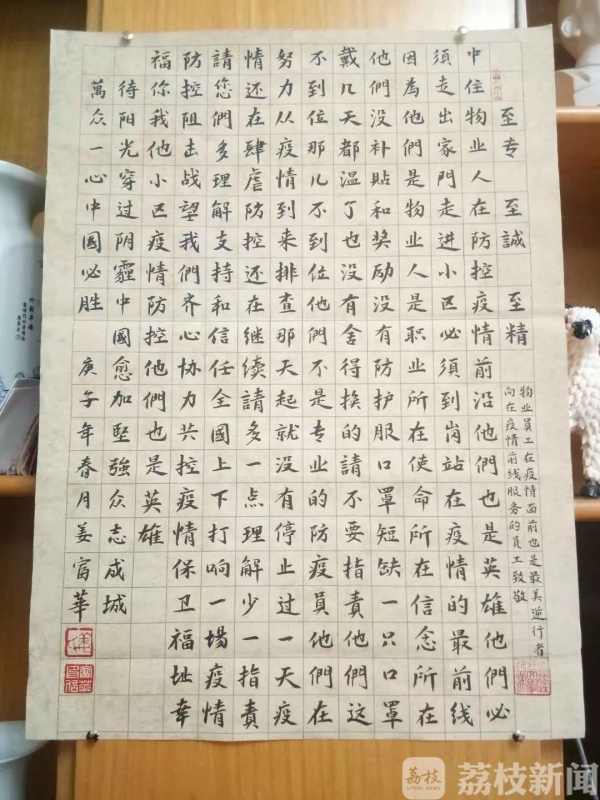 至专 至誠 至精
物业員工在疫情面前也是最美逆行者
向在疫情前线服务的員工致敬
中住物业人在防控疫情前沿他們也是英雄他們必
須走出家門走進小区必須到岗站在疫情的最前线
因為他們是物业人是职业所在使命所在信念所在
他們没补貼和奖励没有防护服口罩短缺一只口罩
戴几天都温了也没有舍得换的請不要指責他們这
不到位那儿不到位他們不是专业的防疫員他們在
努力从疫情到来排查那天起就没有停止过一天疫
情还在肆虐防控还在继续請多一点理解少一指責
請您們多理解支持和信任全國上下打响一場疫情
防控阻击战望我們齐心协力共控疫情保卫福址幸
福你我他小区疫情防控他們也是英雄
待阳光穿过阴霾中國愈加坚強众志成城
萬众一心中國必胜 庚子年春月姜富華
荔枝
荔枝新闻